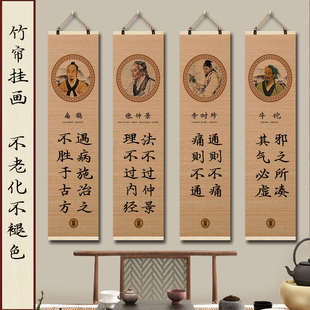 竹帘挂画 不老化不褪色
扁鹊
遇病施治之
不胜于古方
张仲景
法不过仲景
理不过内经
李时珍
通则不痛
痛则不通
华佗
邪之所凑
其气必虚